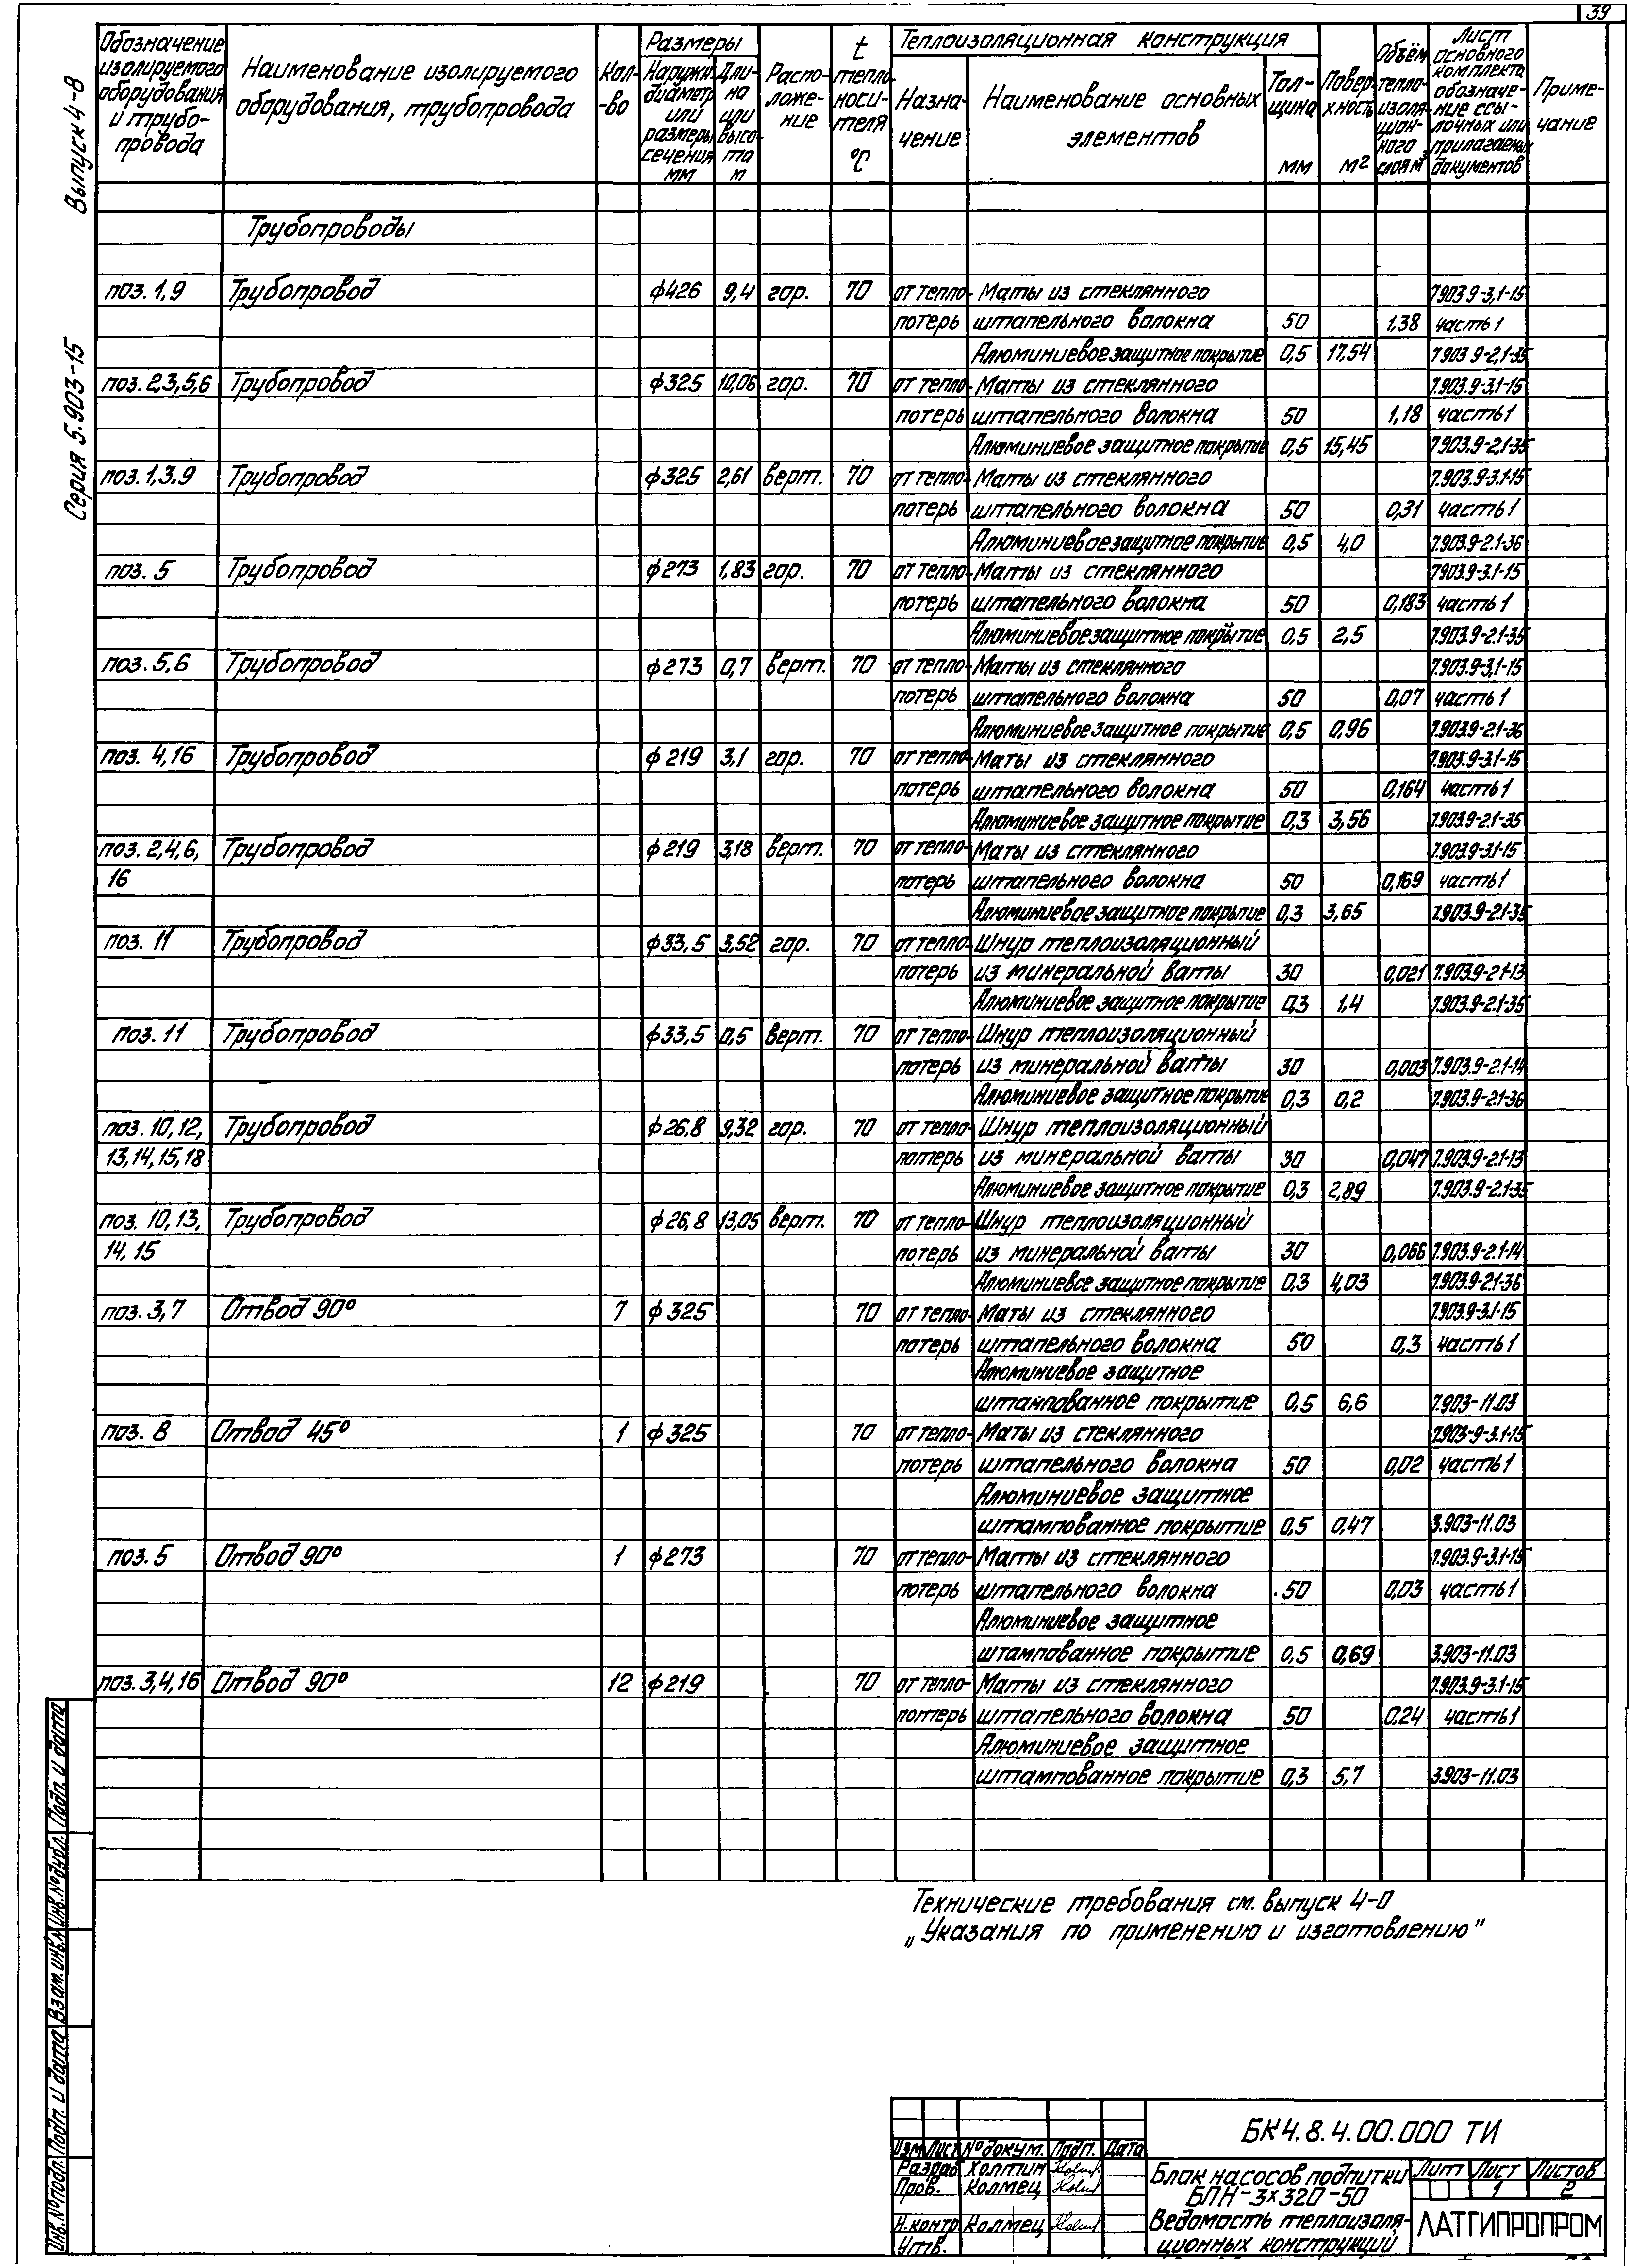 39
Серия 5.903-15 Выпуск 4-8
Обозначение изолируемого оборудования и трубопровода | Наименование изолируемого оборудования, трубопровода | Кол-во | Размеры | Наружн. диаметр или размеры сечения мм | Длина или высота м | Расположение | t теплоносителя °C | Теплоизоляционная конструкция | Назначение | Наименование основных элементов | Толщина мм | Поверхность м² | Объём теплоизоляционного слоя м³ | Лист основного комплекта обозначение ссылочных или прилагаемых документов | Примечание
Трубопроводы
поз. 1,9 Трубопровод ф426 9,4 гор. 70 от тепло- Маты из стеклянного 7.903.9-3,1-15
потерь штапельного волокна 50 1,38 часть 1
Алюминиевое защитное покрытие 0,5 17,54 7.903 9-2,1-35
поз. 2,3,5,6 Трубопровод ф325 10,06 гор. 70 от тепло- Маты из стеклянного 7.903.9-3.1-15
потерь штапельного волокна 50 1,18 часть 1
Алюминиевое защитное покрытие 0,5 15,45 7.903.9-2.1-35
поз. 1,3,9 Трубопровод ф325 2,61 верт. 70 от тепло- Маты из стеклянного 7.903.9-3.1-15
потерь штапельного волокна 50 0,31 часть 1
Алюминиевое защитное покрытие 0,5 4,0 7.903.9-2.1-36
поз. 5 Трубопровод ф273 1,83 гор. 70 от тепло- Маты из стеклянного 7.903.9-3.1-15
потерь штапельного волокна 50 0,183 часть 1
Алюминиевое защитное покрытие 0,5 2,5 7.903.9-2.1-35
поз. 5,6 Трубопровод ф273 0,7 верт. 70 от тепло- Маты из стеклянного 7.903.9-3,1-15
потерь штапельного волокна 50 0,07 часть 1
Алюминиевое защитное покрытие 0,5 0,96 7.903.9-2.1-36
поз. 4,16 Трубопровод ф219 3,1 гор. 70 от тепло- Маты из стеклянного 7.903.9-3.1-15
потерь штапельного волокна 50 0,164 часть 1
Алюминиевое защитное покрытие 0,3 3,56 7.903.9-2.1-35
поз. 2,4,6, Трубопровод ф219 3,18 верт. 70 от тепло- Маты из стеклянного 7.903.9-3.1-15
16 потерь штапельного волокна 50 0,169 часть 1
Алюминиевое защитное покрытие 0,3 3,65 7.903.9-2.1-35
поз. 11 Трубопровод ф33,5 3,52 гор. 70 от тепло- Шнур теплоизоляционный
потерь из минеральной ваты 30 0,021 7.903.9-2.1-13
Алюминиевое защитное покрытие 0,3 1,4 7.903.9-2.1-35
поз. 11 Трубопровод ф33,5 0,5 верт. 70 от тепло- Шнур теплоизоляционный
потерь из минеральной ваты 30 0,003 7.903.9-2.1-14
Алюминиевое защитное покрытие 0,3 0,2 7.903.9-2.1-36
поз. 10,12, Трубопровод ф26,8 9,32 гор. 70 от тепло- Шнур теплоизоляционный
13,14,15,18 потерь из минеральной ваты 30 0,047 7.903.9-2.1-13
Алюминиевое защитное покрытие 0,3 2,89 7.903.9-2.1-35
поз. 10,13, Трубопровод ф26,8 13,05 верт. 70 от тепло- Шнур теплоизоляционный
14,15 потерь из минеральной ваты 30 0,066 7.903.9-2.1-14
Алюминиевое защитное покрытие 0,3 4,03 7.903.9-2.1-36
поз. 3,7 Отвод 90° 7 ф325 70 от тепло- Маты из стеклянного 7.903.9-3.1-15
потерь штапельного волокна 50 0,3 часть 1
Алюминиевое защитное
штампованное покрытие 0,5 6,6 7.903-11.03
поз. 8 Отвод 45° 1 ф325 70 от тепло- Маты из стеклянного 7.903-9-3.1-15
потерь штапельного волокна 50 0,02 часть 1
Алюминиевое защитное
штампованное покрытие 0,5 0,47 3.903-11.03
поз. 5 Отвод 90° 1 ф273 70 от тепло- Маты из стеклянного 7.903.9-3.1-15
потерь штапельного волокна 50 0,03 часть 1
Алюминиевое защитное
штампованное покрытие 0,5 0,69 3.903-11.03
поз. 3,4,16 Отвод 90° 12 ф219 70 от тепло- Маты из стеклянного 7.903.9-3.1-15
потерь штапельного волокна 50 0,24 часть 1
Алюминиевое защитное
штампованное покрытие 0,3 5,7 3.903-11.03
Технические требования см. выпуск 4-0
„Указания по применению и изготовлению"
Инв.№ подл. Подп. и дата Взам.инв.№ Инв.№ дубл. Подп. и дата
БК4.8.4.00.000 ТИ
Изм Лист № докум. Подп. Дата
Разраб Холтин
Пров. Колмец
Н.контр Колмец
Утв.
Блок насосов подпитки
БПН-3×320-50
Ведомость теплоизоля-
ционных конструкций
Лит Лист Листов
1 2
ЛАТГИПРОПРОМ